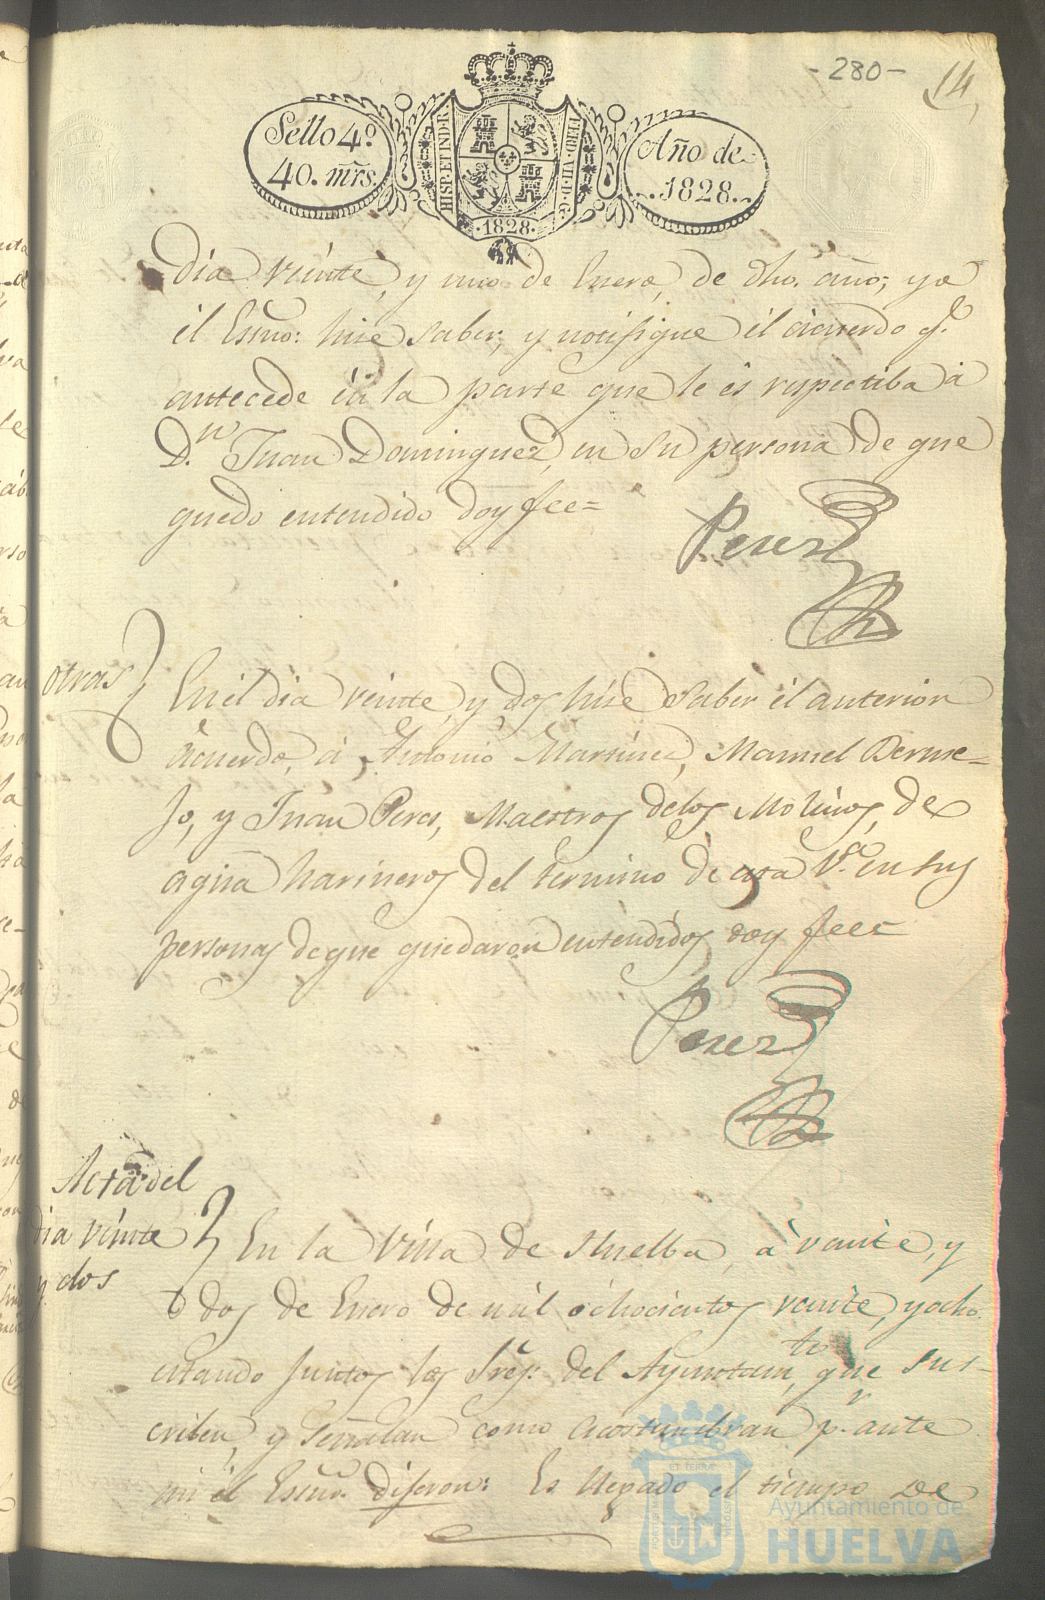 - 280 -
14
Sello 4.º
40. mrs.
HISP. ET IND. R.
FERD. VII. D. G.
· 1828 ·
Año de
1828.
Dia veinte, y uno de Enero, de dho. año; yo
él Essno: hise saber, y notifique él acuerdo q.e
antecede én la parte que le és respectiba á
D.n Juan Dominguez, en su persona de que
quedo entendido doy fee=
Perez
otras
En él dia veinte, y dos hise saber él anterior
acuerdo, á Antonio Martines, Manuel Berme=
jo, y Juan Peres, Maestros delos Molinos, de
agua harineros del termino de esta V.a en sus
personas de que quedaron entendidos doy fee=
Perez
Acta del
dia veinte
y dos
En la Villa de Huelba, á veinte, y
dos de Enero de mil ochocientos veinte, y ocho
estando juntos los Sres. del Ayuntam.to, que sus-
criben, y señalan como acostumbran p.r ante
mi él Essno. dijeron: Es llegado el tiempo de
Ayuntamiento de
HUELVA